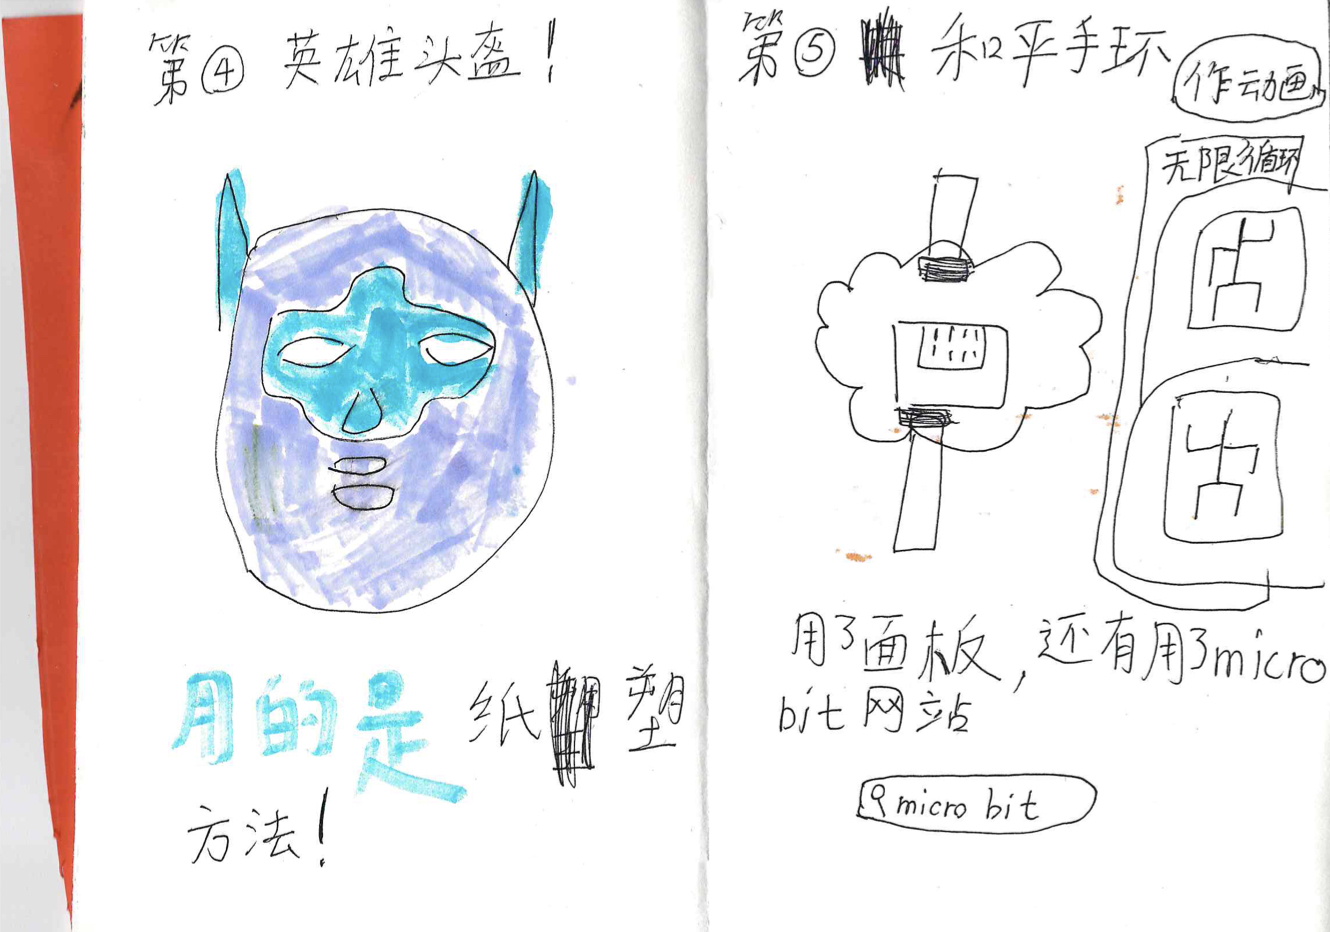 第④ 英雄头盔！
用的是 纸 塑
方法！
第⑤ 和平手环
作动画
无限循环
用了面板，还有用了micro
bit网站
micro bit